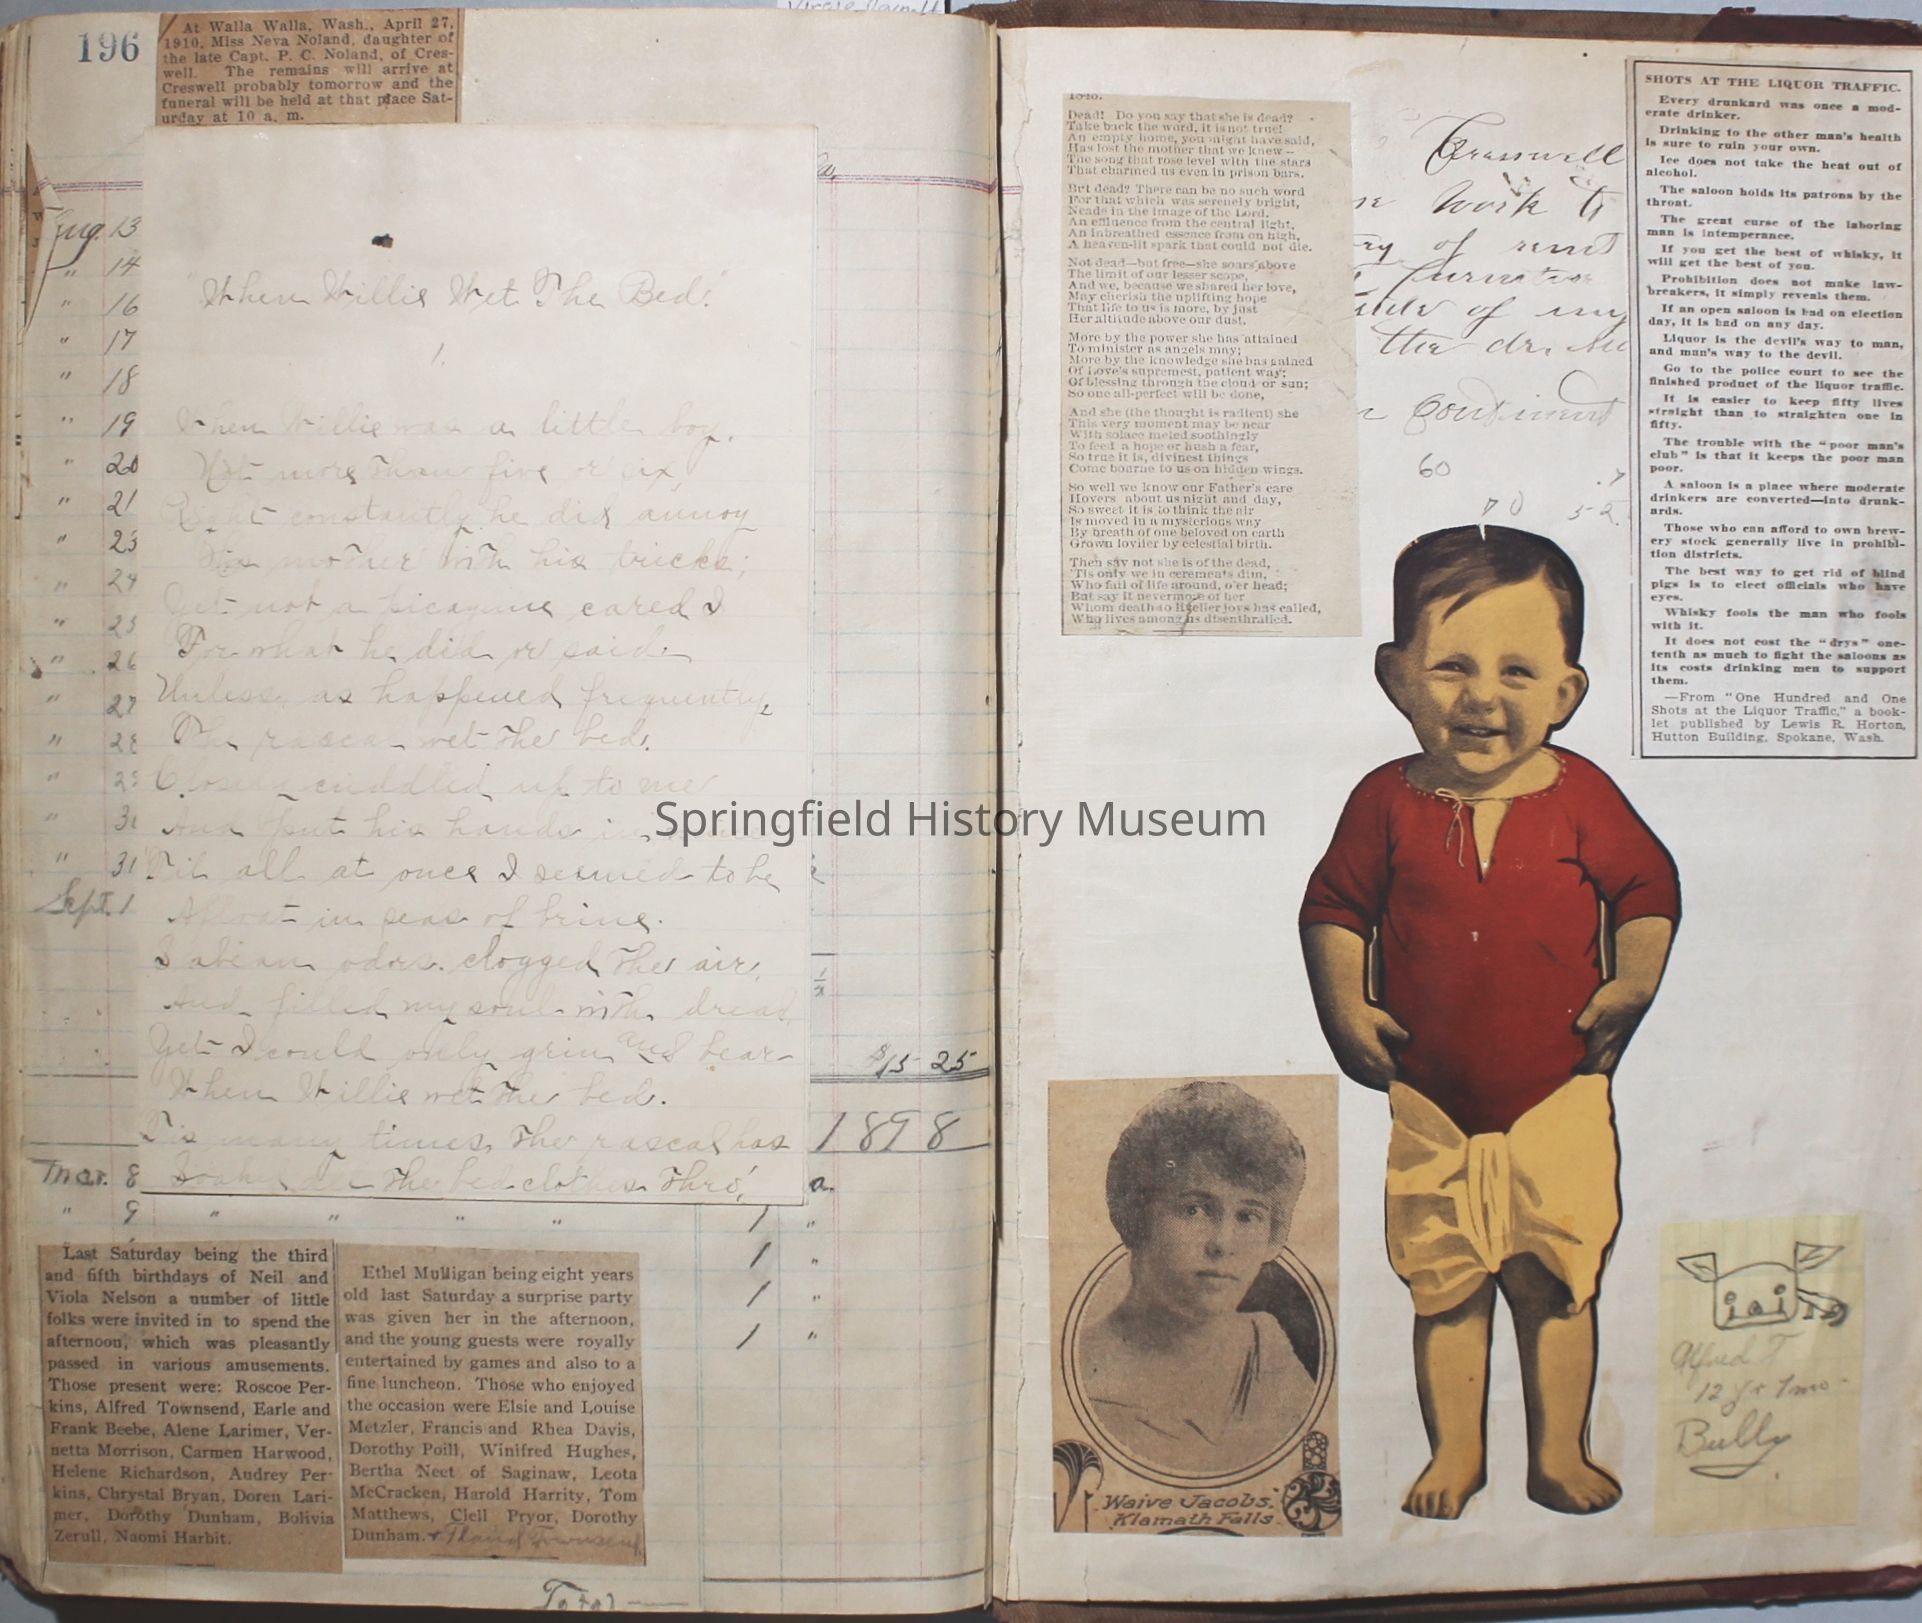 196
At Walla Walla, Wash., April 27,
1910, Miss Neva Noland, daughter of
the late Capt. P. C. Noland, of Cres-
well. The remains will arrive at
Creswell probably tomorrow and the
funeral will be held at that place Sat-
urday at 10 a. m.
Aug. 13
" 14
" 16
" 17
" 18
" 19
" 20
" 21
" 23
" 24
" 25
" 26
" 27
" 28
" 31
Sept. 1
"When Willie Wet The Bed."
1.
When Willie was a little boy,
Not more than five or six,
Right constantly he did annoy
His mother with his tricks;
Yet not a picayune cared I
For what he did or said
Unless, as happened frequently,
The rascal wet the bed.
Closely cuddled up to me
And put his hands in
'Til all at once I seemed to be
Afloat in seas of brine.
Sabean odors clogged the air,
And filled my soul with dread,
Yet I could only grin and bear
When Willie wet the bed.
'Tis many times, the rascal has
Soaked all the bed clothes thro',
$15 25
1898
Mar. 8
a.
" 9 " " " " 1 "
1 "
1 "
1 "
Last Saturday being the third
and fifth birthdays of Neil and
Viola Nelson a number of little
folks were invited in to spend the
afternoon, which was pleasantly
passed in various amusements.
Those present were: Roscoe Per-
kins, Alfred Townsend, Earle and
Frank Beebe, Alene Larimer, Ver-
netta Morrison, Carmen Harwood,
Helene Richardson, Audrey Per-
kins, Chrystal Bryan, Doren Lari-
mer, Dorothy Dunham, Bolivia
Zerull, Naomi Harbit.
Ethel Mulligan being eight years
old last Saturday a surprise party
was given her in the afternoon,
and the young guests were royally
entertained by games and also to a
fine luncheon. Those who enjoyed
the occasion were Elsie and Louise
Metzler, Francis and Rhea Davis,
Dorothy Poill, Winifred Hughes,
Bertha Neet of Saginaw, Leota
McCracken, Harold Harrity, Tom
Matthews, Clell Pryor, Dorothy
Dunham. Townsend
Total
Dead! Do you say that she is dead?
Take back the word, it is not true!
An empty home, you might have said,
Has lost the mother that we knew—
The song that rose level with the stars
That charmed us even in prison bars.
But dead? There can be no such word
For that which was serenely bright,
Neade in the image of the Lord.
An effluence from the central light,
An inbreathed essence from on high,
A heaven-lit spark that could not die.
Not dead—but free—she soars above
The limit of our lesser scope,
And we, because we shared her love,
May cherish the uplifting hope
That life to us is more, by just
Her altitude above our dust.
More by the power she has attained
To minister as angels may;
More by the knowledge she has gained
Of Love's supremest, patient way;
Of blessing through the cloud or sun;
So one all-perfect will be done,
And she (the thought is radient) she
This very moment may be near
With solace meted soothingly
To feed a hope or hush a fear,
So true it is, divinest things
Come bourne to us on hidden wings.
So well we know our Father's care
Hovers about us night and day,
So sweet it is to think the air
Is moved in a mysterious way
By breath of one beloved on earth
Grown lovlier by celestial birth.
Then say not she is of the dead,
'Tis only we in cerements dim,
Who fail of life around, o'er head;
But say it nevermore of her
Whom death to livelier joys has called,
Who lives among us disenthralled.
Cresswell
work to
of rent
of my
the
60
70
52
SHOTS AT THE LIQUOR TRAFFIC.
Every drunkard was once a mod-
erate drinker.
Drinking to the other man's health
is sure to ruin your own.
Ice does not take the heat out of
alcohol.
The saloon holds its patrons by the
throat.
The great curse of the laboring
man is intemperance.
If you get the best of whisky, it
will get the best of you.
Prohibition does not make law-
breakers, it simply reveals them.
If an open saloon is bad on election
day, it is bad on any day.
Liquor is the devil's way to man,
and man's way to the devil.
Go to the police court to see the
finished product of the liquor traffic.
It is easier to keep fifty lives
straight than to straighten one in
fifty.
The trouble with the "poor man's
club" is that it keeps the poor man
poor.
A saloon is a place where moderate
drinkers are converted—into drunk-
ards.
Those who can afford to own brew-
ery stock generally live in prohibi-
tion districts.
The best way to get rid of blind
pigs is to elect officials who have
eyes.
Whisky fools the man who fools
with it.
It does not cost the "drys" one-
tenth as much to fight the saloons as
its costs drinking men to support
them.
—From "One Hundred and One
Shots at the Liquor Traffic," a book-
let published by Lewis R. Horton,
Hutton Building, Spokane, Wash.
Springfield History Museum
Waive Jacobs,
Klamath Falls
Alfred T
12 yr 7 mo.
Bully